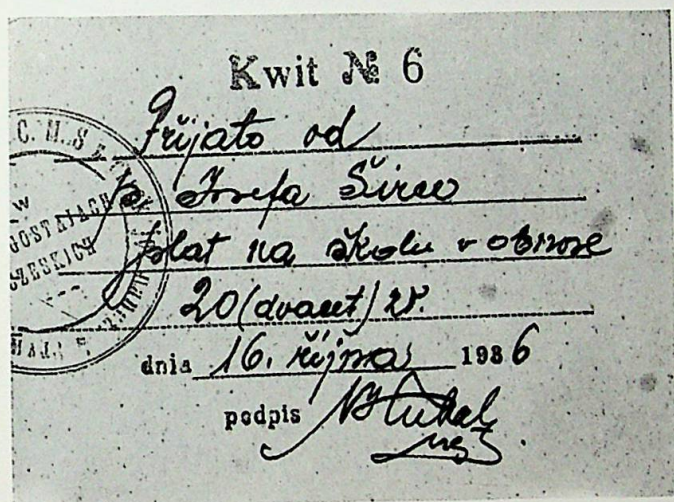 Kwit № 6
Přijato od
p. Josefa Širce
plat na školu v obnose
20 (dvacet) zł.
dnia 16. října 1936
podpis
C. M. S.
w
GOSTAJACH
CZESKICH